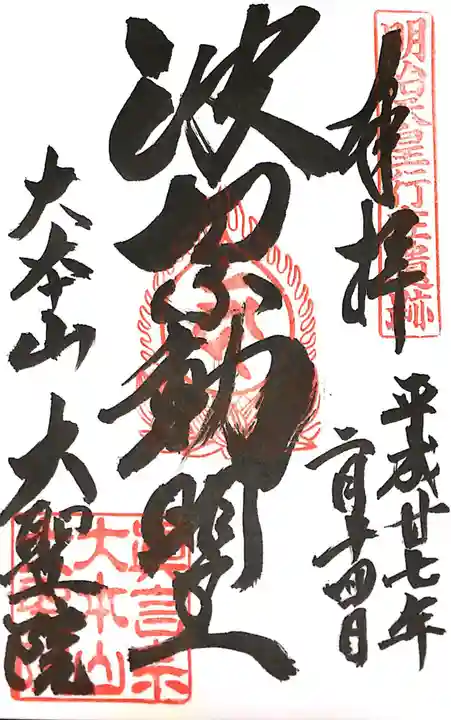 明治天皇行在遺跡
奉拝
平成廿七年
二月十四日
波切不動明王
大本山 大聖院
真言宗
大本山